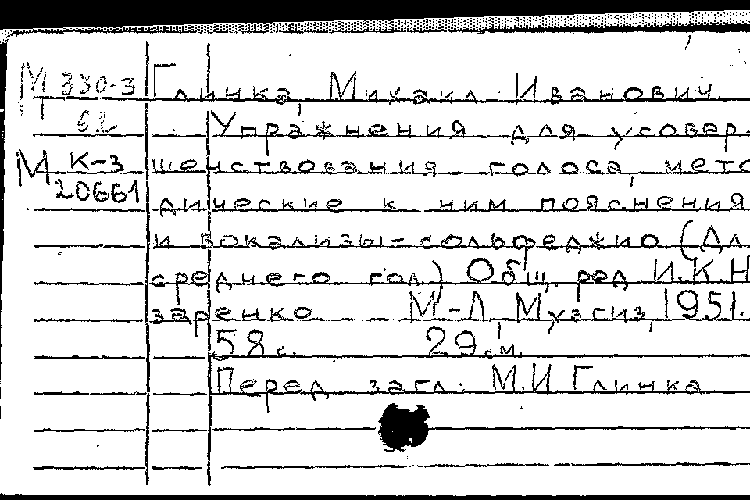 М 330-3 Глинка, Михаил Иванович
62 Упражнения для усовер-
М К-3 шенствования голоса, мето
20661 дические к ним пояснения
и вокализы-сольфеджио (Дл
среднего гол) Общ. ред И.К Н
заренко М-Л, Музгиз, 1951.
58 с. 29 см.
Перед загл: М.И Глинка